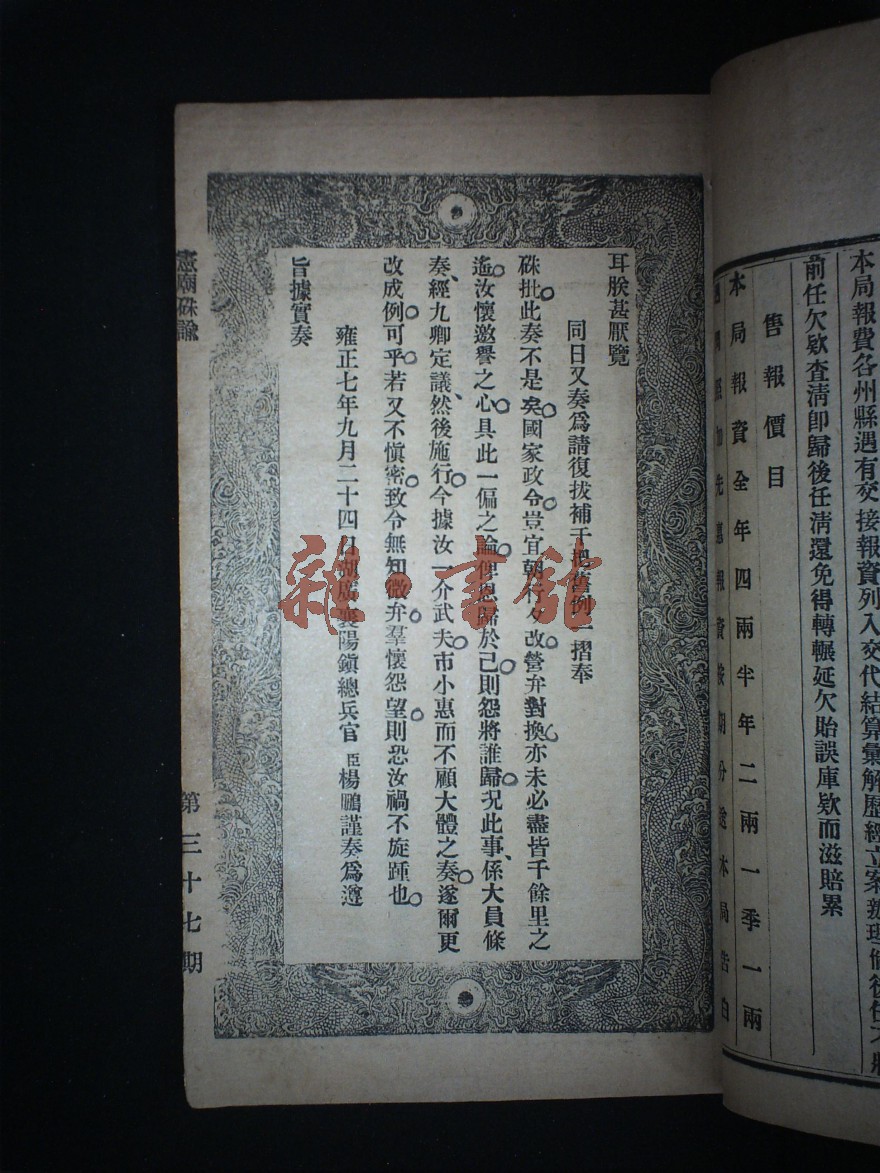 本局報費各州縣遇有交接報資列入交代結算彙解歷經立案辦理倘後任不將
前任欠欵查淸即歸後任淸還免得轉輾延欠貽誤庫欵而滋賠累
售報價目
本局報資全年四兩半年二兩一季一兩
先惠報資按期分送本局告白
耳朕甚厭覽
同日又奏爲請復拔補千把舊例一摺奉
硃批此奏不是矣國家政令豈宜朝行夕改營弁對換亦未必盡皆千餘里之
遙汝懷邀譽之心具此一偏之論俾恩歸於己則怨將誰歸況此事、係大員條
奏、經九卿定議、然後施行今據汝一介武夫市小惠而不顧大體之奏遂爾更
改成例可乎若又不愼密致令無知微弁羣懷怨望則恐汝禍不旋踵也
雍正七年九月二十四日湖廣襄陽鎮總兵官臣楊鵬謹奏爲遵
旨據實奏
憲廟硃諭
第三十七期
雜·書館